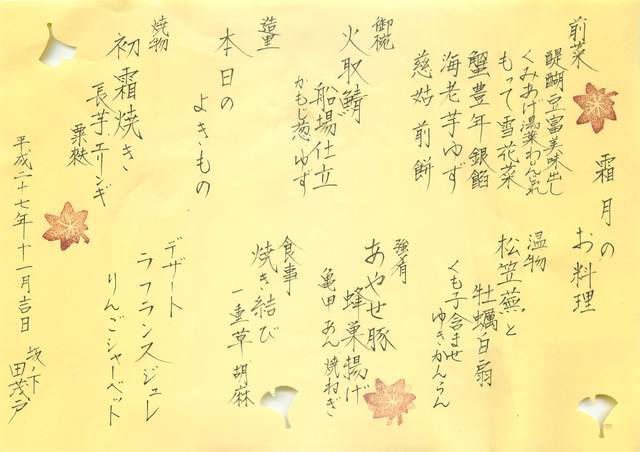 霜月のお料理
前菜
醍醐豆富美味出し
くみあげ湯葉わんく
もって雪花菜
蟹豊年銀餡
海老芋ゆず
慈姑煎餅
御椀
火取鯖
船場仕立
かもじ葱ゆず
造里
本日の
よきもの
焼物
初霜焼き
長芋エリンギ
粟麩
温物
松笠蕪と
牡蠣白扇
くも子含ませ
ゆきかんらん
強肴
あやせ豚
蜂巣揚げ
亀甲あん焼ねぎ
食事
焼き結び
一重草胡麻
デザート
ラフランスジュレ
りんごシャーベット
平成二十七年十一月吉日
坂ノ下
田茂戸